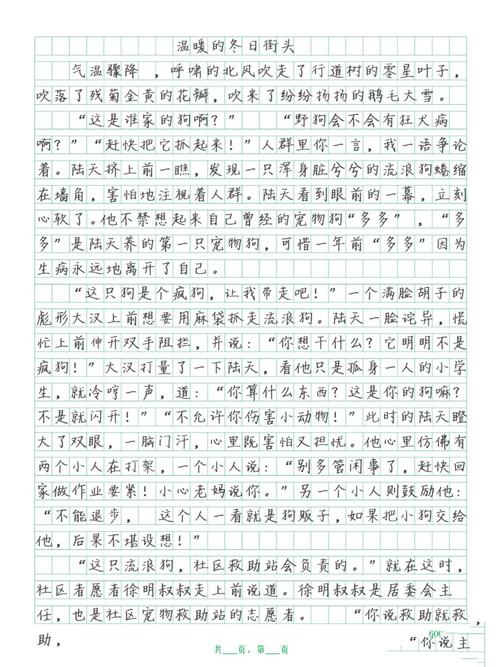 温暖的冬日街头
气温骤降，呼啸的北风吹走了行道树的零星叶子，
吹落了残菊金黄的花瓣，吹来了纷纷扬扬的鹅毛大雪。
“这是谁家的狗啊？”“野狗会不会有狂犬病
啊？”“赶快把它抓起来！”人群里你一言，我一语争论
着。陆天挤上前一瞧，发现一只浑身脏兮兮的流浪狗蜷缩
在墙角，害怕地注视着人群。陆天看到眼前的一幕，立刻
心软了。他不禁想起来自己曾经的宠物狗“多多”，“多
多”是陆天养的第一只宠物狗，可惜一年前“多多”因为
生病永远地离开了自己。
“这只狗是个疯狗，让我带走吧！”一个满脸胡子的
彪形大汉上前想要用麻袋抓走流浪狗。陆天一脸诧异，慌
忙上前伸开双手阻拦，并说：“你想干什么？它明明不是
疯狗！”大汉打量了一下陆天，看他只是孤身一人的小学
生，就冷哼一声，道：“你算什么东西？这是你的狗嘛？
不是就闪开！”“不允许你伤害小动物！”此时的陆天瞪
大了双眼，一脑门汗，心里既害怕又担忧。他心里仿佛有
两个小人在打架，一个小人说：“别多管闲事了，赶快回
家做作业要紧！小心老妈说你。”另一个小人则鼓励他：
“不能退步，这个人一看就是狗贩子，如果把小狗交给
他，后果不堪设想！”
“这只流浪狗，社区救助站会负责的。”就在这时，
社区者愿者徐明叔叔走上前说道。徐明叔叔是居委会主
任，也是社区宠物救助站的志愿者。“你说救助就救
助，“你说主
共___页，第___页